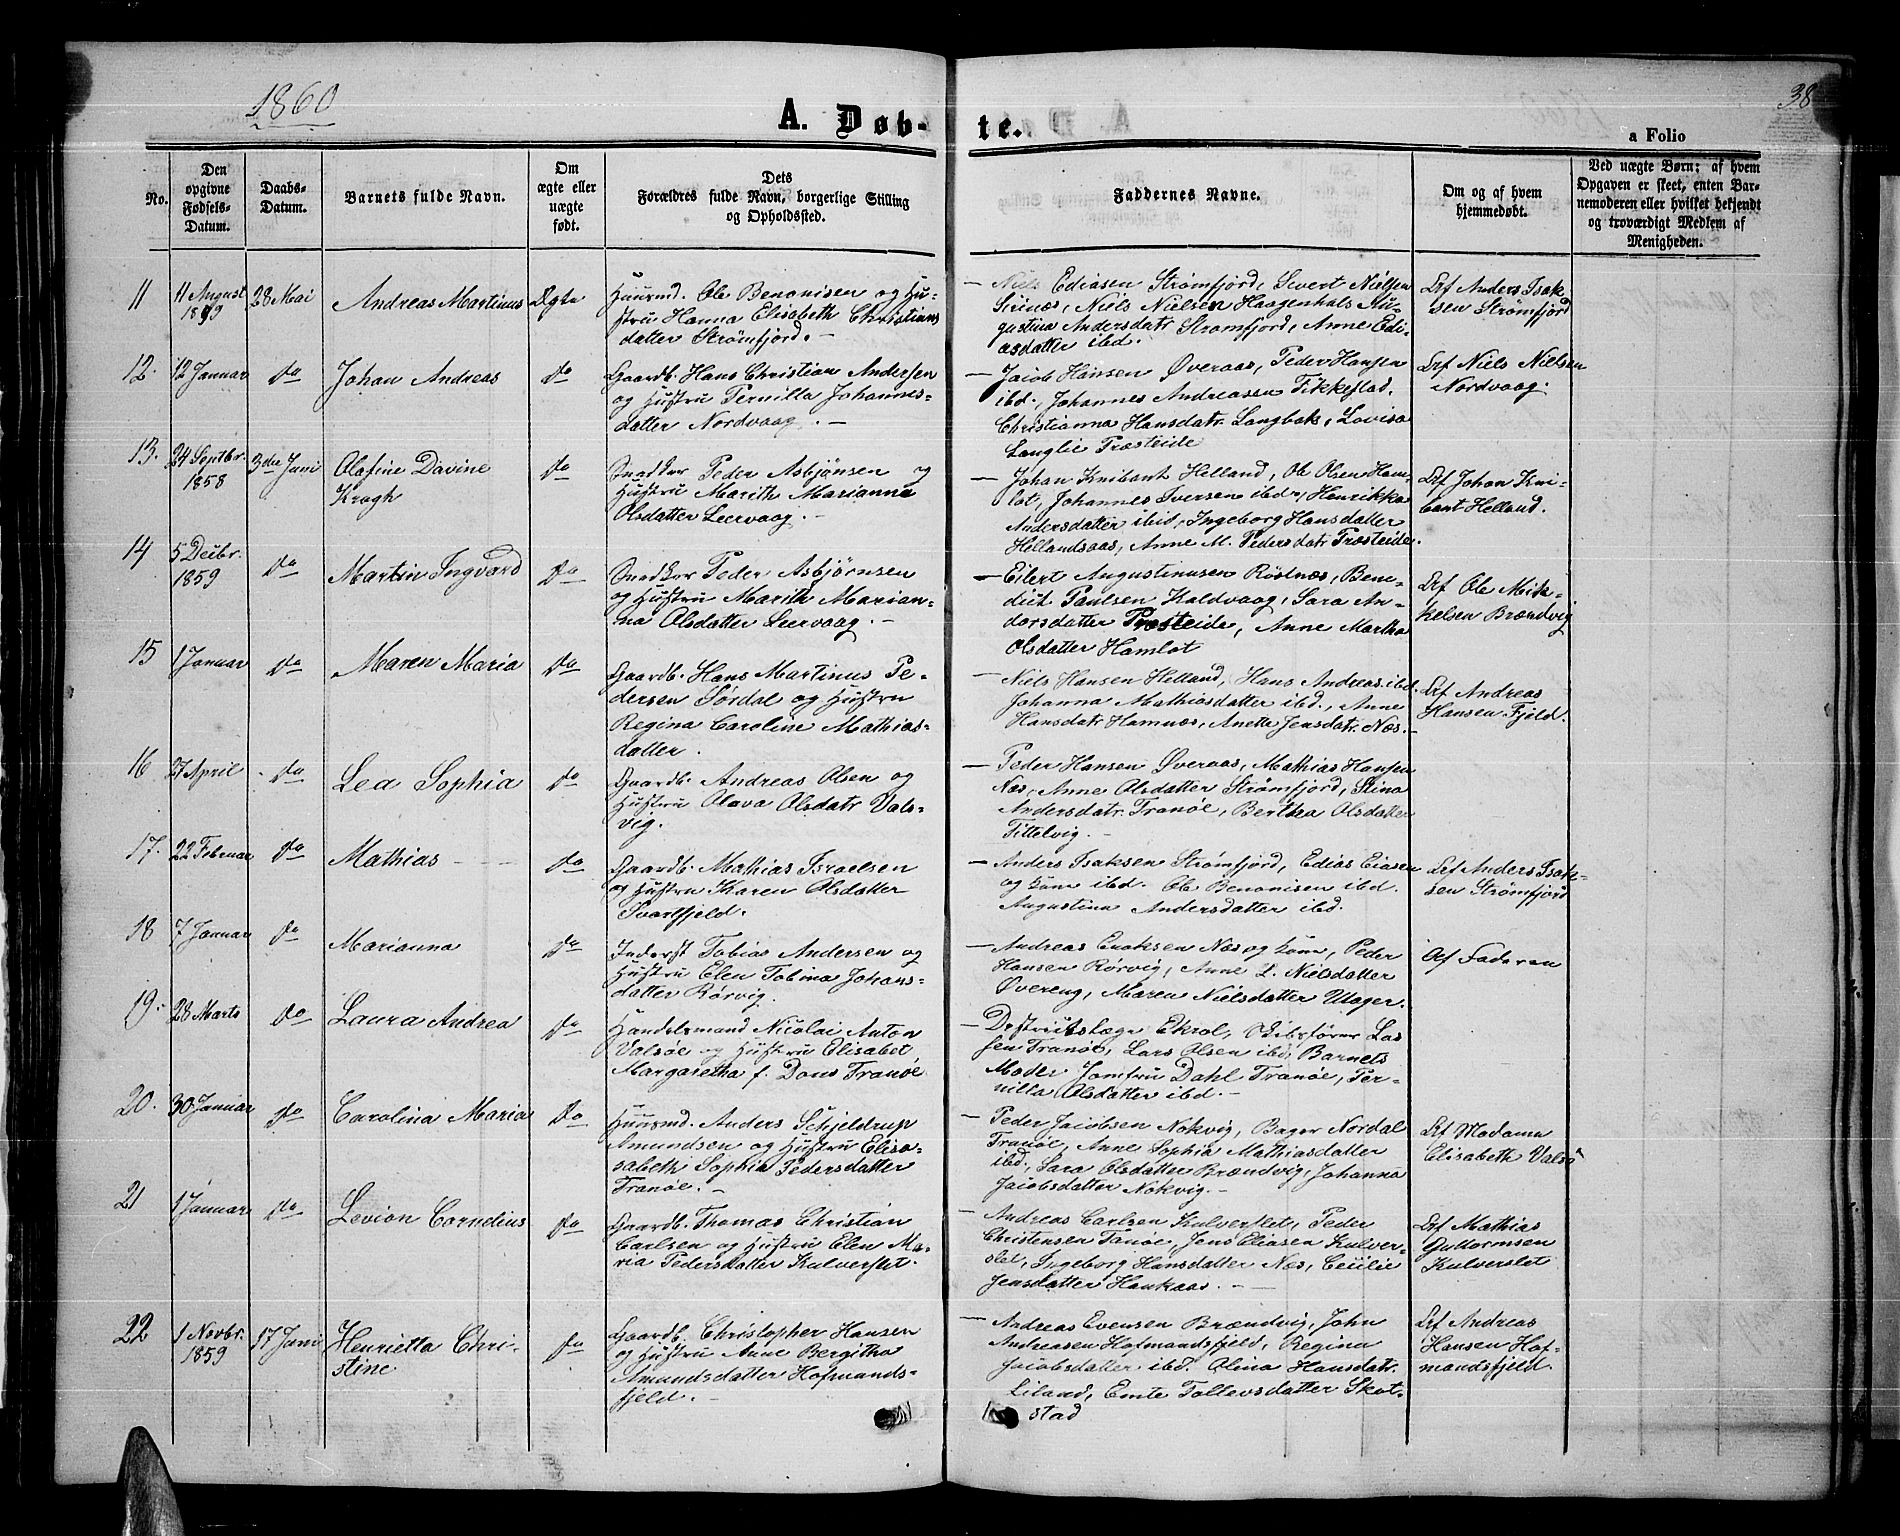 1860
38
A. Døb-
te.
a Folio
No.
Den
opgivne
Fødsels-
Datum.
Daabs-
Datum.
Barnets fulde Navn.
Om
ægte eller
uægte
født.
Dets
Forældres fulde Navn, borgerlige Stilling
og Opholdssted.
Faddernes Navne.
Om og af hvem
hjemmedøbt.
Ved uægte Børn; af hvem
Opgaven er skeet, enten Bar-
nemoderen eller hvilket bekjendt
og troværdigt Medlem af
Menigheden.
11
11 August
1859
28 Mai
Andreas Martinus
Ægte
Huusmd. Ole Benonisen og Hu-
stru Hanna Elisabeth Christians
datter Strømfjord. -
- Niels Ediasen Strømfjord, Sivert Nielsen
Niels Nielsen Haagenhals Au-
gustina Andersdatr Strømfjord, Anne Edi-
asdatter ibd.
Af Anders Isak-
sen Strømfjord
12.
12 Januar
do
Johan Andreas
do
Gaardb. Hans Christian Andersen
og Hustru Pernilla Johannes-
datter Nordvaag. -
- Jacob Hansen Øveraas, Peder Hansen
ibd., Johannes Andreassen Fikkestad,
Christianna Hansdatr. Langbak, Lovisa
Langlie Præsteide
Af Niels Nielsen
Nordvaag.
13.
24 Septbr.
1858
3die Juni
Olafine Davine
Kragh
do
Peder Asbjönsen og
Hustru Marith Marianna
Olsdatter Leervaag. -
- Johan Knibant Helland, Ole Olsen Ham-
lot, Johannes Iversen ibd., Henrikka
Andersdatter ibid, Ingeborg Hansdatter
Hellandsaas, Anne M. Pedersdatr Præsteide.
Af Johan Kni-
bant Helland.
14
5 Decbr.
1859
do
Martin Ingvard
do
Peder Asbjørnsen
og Hustru Marith Marian-
na Olsdatter Leervaag. -
- Eilert Augustinusen Røstnæs, Bene-
dict Paulsen Kaldvaag, Sara An-
dersdatter Præsteide, Anne Martha
Olsdatter Hamlot
Af Ole Mika-
kelsen Brændvig
15
1 Januar
do
Maren Maria
do
Gaardb. Hans Martinus Pe-
dersen Sørdal og Hustru
Regina Caroline Mathias-
datter.
- Niels Hansen Helland, Hans Andreas. ibd.
Johanna Mathiasdatter ibd., Anne
Hansdatr Hamnæs, Anette Jensdatr. Næs. -
Af Andreas
Hansen Fjeld.
16
27 April
do
Lea Sophia
do
Gaardb. Andreas Olsen og
Hustru Olava Olsdatr Vals-
vig.
- Peder Hansen Øveraas, Mathias Hansen
Næs, Anne Olsdatter Strømfjord, Stina
Andersdatr. Tranøe, Bertha Olsdatter
Tittelvig. -
17.
22 Februar
do
Mathias
do
Gaardb. Mathias Israelsen
og Hustru Karen Olsdatter
Svartfjeld.
- Anders Isaksen Strømfjord, Edias Eiasen
og Kone ibd. Ole Benonisen ibd.
Augustina Andersdatter ibd.
Af Anders Isak-
sen Strømfjord
18
7 Januar
do
Marianna
do
Inderst Tobias Andersen og
Hustru Elen Tobina Johans-
datter Rørvig.
- Andreas Enoksen Næs og Kone, Peder
Hansen Rørvig, Anne L. Nielsdatter
Øvereng, Maren Nielsdatter Uager.
Af Faderen
19.
28 Marts
do
Laura Andrea
do
Handelsmand Nicolai Anton
Valsøe og Hustru Elisabet
Margaretha f. Dons Tranøe
- Districtslæge Ekrol, Skibsfører Las
sen Tranøe, Lars Olsen ibd, Barnets
Moder Jomfru Dahl Tranøe, Per-
nilla Olsdatter ibd. -
20.
30 Januar
do
Carolina Maria
do
Huusmd. Anders Schjeldrup
Amundsen og Hustru Elisa-
sabeth Sophia Pedersdatter
Tranøe. -
- Peder Jacobsen Nokvig, Bager Nordal
Tranøe, Anne Sophia Mathiasdatter
ibd, Sara Olsdatter Brændvig, Johanna
Jacobsdatter Nokvig. -
Af Madama
Elisabeth Valsö
21
1 Januar
do
Levion Cornelius
do
Gaardb. Thomas Christian
Carlsen og Hustru Elen Ma-
ria Pedersdatter Kulverslet.
- Andreas Carlsen Kulverslet, Peder
Christensen Tanøe, Jens Eliasen Kulver-
slet, Ingeborg Hansdatter Næs, Cecilie
Jensdatter Haukaas. -
Af Mathias
Guttormsen
Kulverslet
22
1 Novbr.
1859
17 Juni
Henrietta Chri-
stine
do
Gaardb. Christopher Hansen
og Hustru Anne Bergitha
Amundsdatter Hofmands-
fjeld. -
- Andreas Evensen Brændvig, John
Andreasen Hofmandsfjeld, Regina
Jacobsdatter ibd. Olina Hansdatr.
Liland, Emte Tollevsdatter Skot-
stad
Af Andreas
Hansen Hof-
mandsfjeld.